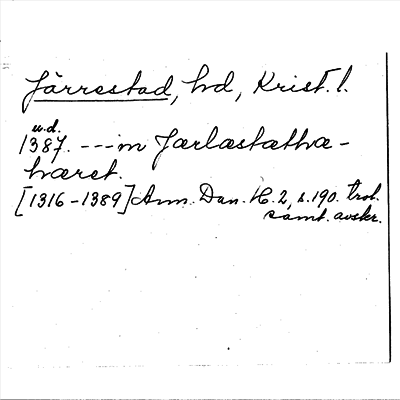 Järrestad, hd, Krist. l.
u.d.
1387. --- in Jarlastatha-
hæret.
[1316-1389] Ann. Dan. H. 2, s. 190. trol.
samt. avskr.